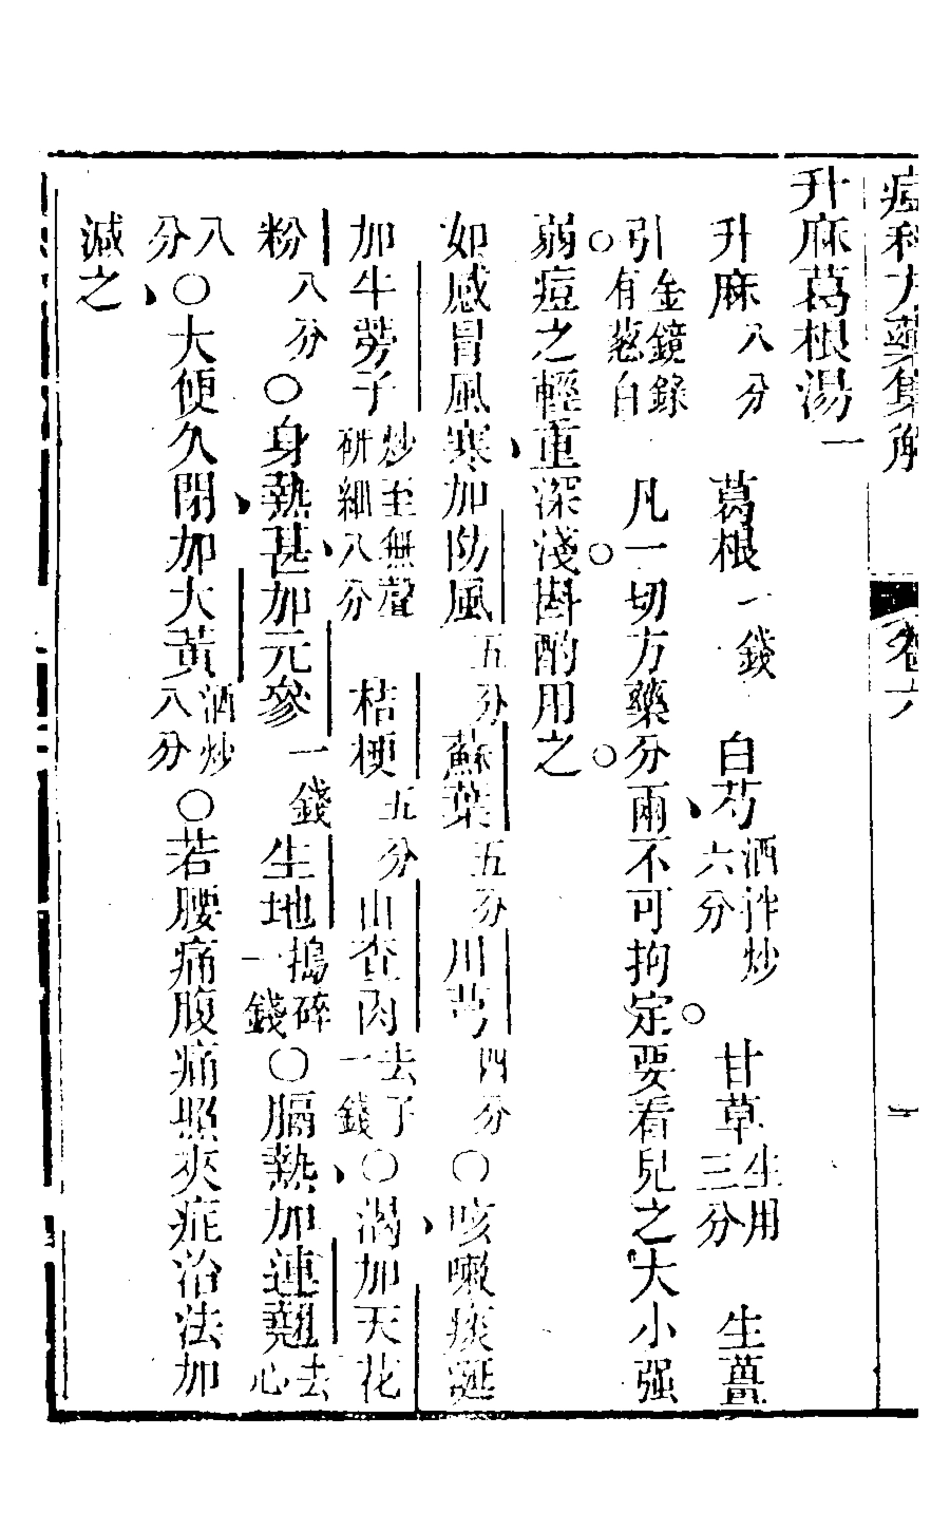 痘科方藥集解 卷六 一
升麻葛根湯一
升麻八分 葛根一錢 白芍酒炒六分 甘草生用三分 生薑
引金鏡錄有葱白 凡一切方藥分兩不可拘定要看兒之大小强
弱痘之輕重深淺斟酌用之
如感冒風寒加防風五分蘇葉五分川芎四分○咳嗽痰涎
加牛蒡子炒至無聲研細八分 桔梗五分山查肉去子一錢○渴加天花
粉八分○身熱甚加元參一錢生地搗碎一錢○膈熱加連翹去心
八分○大便久閉加大黃酒炒八分○若腰痛腹痛照夾症治法加
減之